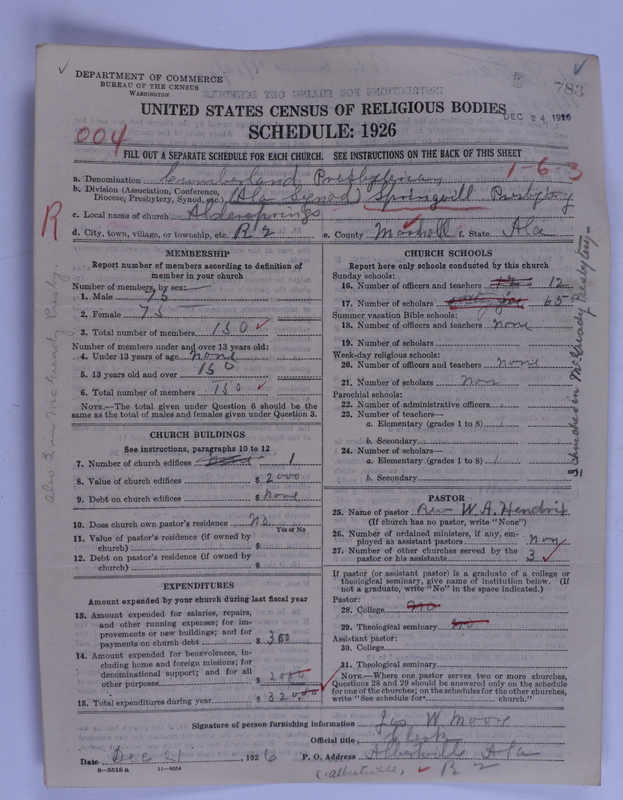 DEPARTMENT OF COMMERCE
BUREAU OF THE CENSUS
WASHINGTON
783
UNITED STATES CENSUS OF RELIGIOUS BODIES
DEC 24 1926
004
SCHEDULE: 1926
FILL OUT A SEPARATE SCHEDULE FOR EACH CHURCH. SEE INSTRUCTIONS ON THE BACK OF THIS SHEET
1-6-3
a. Denomination Cumberland Presbyterian
b. Division (Association, Conference, Diocese, Presbytery, Synod, etc.) (Ala Synod) Springvill Presbytery
R
c. Local name of church Aldersprings
d. City, town, village, or township, etc. R 2 e. County Marshall f. State Ala
MEMBERSHIP
Report number of members according to definition of member in your church
Number of members, by sex:
1. Male 75
2. Female 75
3. Total number of members 150
Number of members under and over 13 years old:
4. Under 13 years of age none
5. 13 years old and over 150
6. Total number of members 150
NOTE.—The total given under Question 6 should be the same as the total of males and females given under Question 3.
CHURCH BUILDINGS
See instructions, paragraphs 10 to 12
7. Number of church edifices 1
8. Value of church edifices $ 2000
9. Debt on church edifices $ none
10. Does church own pastor's residence No
Yes or No
11. Value of pastor's residence (if owned by church) $
12. Debt on pastor's residence (if owned by church) $
EXPENDITURES
Amount expended by your church during last fiscal year
13. Amount expended for salaries, repairs, and other running expenses; for improvements or new buildings; and for payments on church debt $ 300
14. Amount expended for benevolences, including home and foreign missions; for denominational support; and for all other purposes $
15. Total expenditures during year $
CHURCH SCHOOLS
Report here only schools conducted by this church
Sunday schools:
16. Number of officers and teachers 12
17. Number of scholars 65
Summer vacation Bible schools:
18. Number of officers and teachers none
19. Number of scholars
Week-day religious schools:
20. Number of officers and teachers none
21. Number of scholars non
Parochial schools:
22. Number of administrative officers
23. Number of teachers—
a. Elementary (grades 1 to 8)
b. Secondary
24. Number of scholars—
a. Elementary (grades 1 to 8)
b. Secondary
PASTOR
25. Name of pastor Rev W. A. Hendrix
(If church has no pastor, write "None")
26. Number of ordained ministers, if any, employed as assistant pastors non
27. Number of other churches served by the pastor or his assistants 3
If pastor (or assistant pastor) is a graduate of a college or theological seminary, give name of institution below. (If not a graduate, write "No" in the space indicated.)
Pastor:
28. College no
29. Theological seminary no
Assistant pastor:
30. College
31. Theological seminary
NOTE.—Where one pastor serves two or more churches, Questions 28 and 29 should be answered only on the schedule for one of the churches; on the schedules for the other churches, write "See schedule for church."
Signature of person furnishing information Jas. W. Moore
Official title Clerk
Date Dec 21, 1926 P. O. Address Albertville Ala
8-5518 a 11-9054
(Albertville, R 2